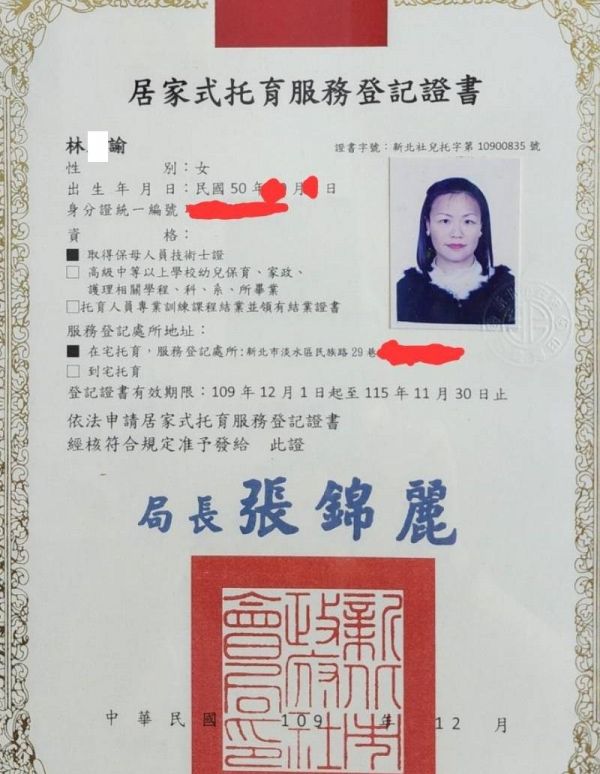 居家式托育服務登記證書
林 諭
證書字號：新北社兒托字第10900835號
性 別：女
出生年月日：民國50年 月 日
身分證統一編號
資 格：
■ 取得保母人員技術士證
□ 高級中等以上學校幼兒保育、家政、
護理相關學程、科、系、所畢業
□托育人員專業訓練課程結業並領有結業證書
服務登記處所地址：
■ 在宅托育，服務登記處所：新北市淡水區民族路29巷
□ 到宅托育
登記證書有效期限：109年12月1日起至115年11月30日止
依法申請居家式托育服務登記證書
經核符合規定准予發給 此證
局長 張錦麗
新北市
政府社
會局印
中華民國 109 年 12 月